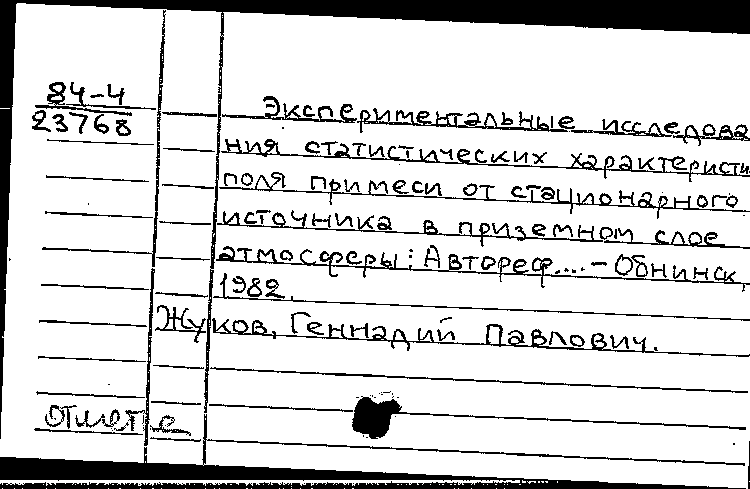 84-4
23768
Экспериментальные исследова
ния статистических характеристи
поля примеси от стационарного
источника в приземном слое
атмосферы: Автореф....-Обнинск,
1982.
Жуков, Геннадий Павлович.